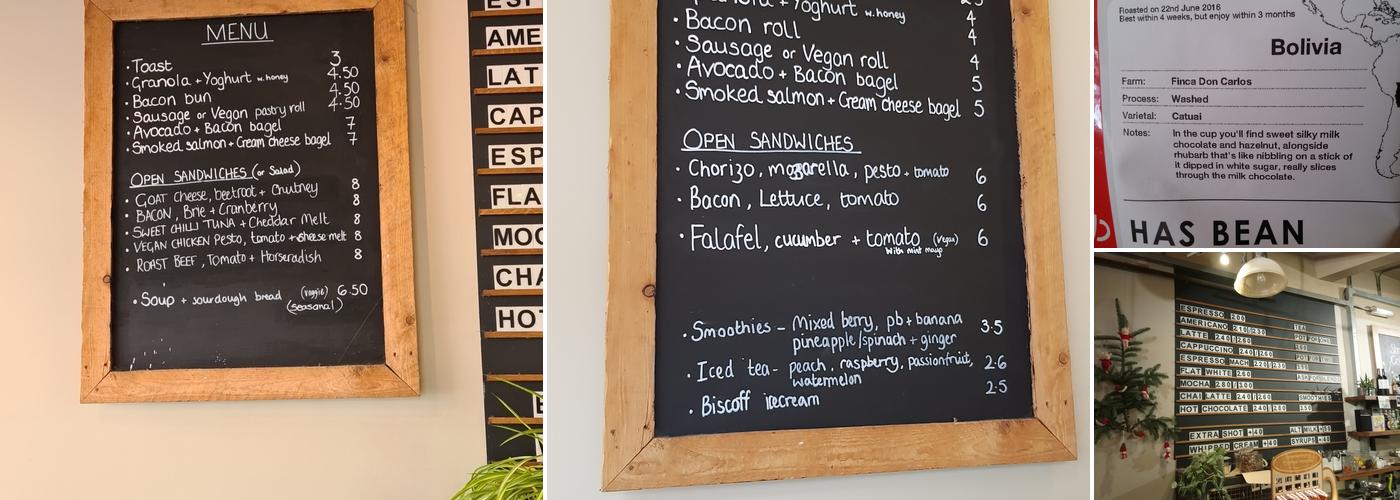 MENU
· Toast 3
· Granola + Yoghurt w. honey 4.50
· Bacon bun 4.50
· Sausage or Vegan pastry roll 4.50
· Avocado + Bacon bagel 7
· Smoked salmon + Cream cheese bagel 7
OPEN SANDWICHES (or Salad)
· GOAT cheese, beetroot + Chutney 8
· BACON, Brie + Cranberry 8
· SWEET CHILLI TUNA + Cheddar Melt 8
· VEGAN CHICKEN Pesto, tomato + sheese melt 8
· ROAST BEEF, Tomato + Horseradish 8
· Soup + sourdough bread (veggie) 6.50
(seasonal)
AME
LAT
CAP
ESP
FLA
MOC
CHA
HOT
Yoghurt w. honey
· Bacon roll 4
· Sausage or Vegan roll 4
· Avocado + Bacon bagel 5
· Smoked salmon + Cream cheese bagel 5
OPEN SANDWICHES
· Chorizo, mozarella, pesto + tomato 6
· Bacon, Lettuce, tomato 6
· Falafel, cucumber + tomato (Vegan) 6
with mint mayo
· Smoothies - Mixed berry, pb + banana 3.5
pineapple/spinach + ginger
· Iced tea - peach, raspberry, passionfruit, 2.6
watermelon
· Biscoff icecream 2.5
Roasted on 22nd June 2016
Best within 4 weeks, but enjoy within 3 months
Bolivia
Farm: Finca Don Carlos
Process: Washed
Varietal: Catuai
Notes: In the cup you'll find sweet silky milk
chocolate and hazelnut, alongside
rhubarb that's like nibbling on a stick of
it dipped in white sugar, really slices
through the milk chocolate.
HAS BEAN
ESPRESSO 200
AMERICANO 210/230
LATTE 240/260
CAPPUCCINO 240/260
ESPRESSO MACH 220/230
FLAT WHITE 260
MOCHA 280/300
CHAI LATTE 240/260
HOT CHOCOLATE 240/260
TEA
SMOOTHIES
EXTRA SHOT +40
WHIPPED CREAM +40
ALT MILK
SYRUPS +40